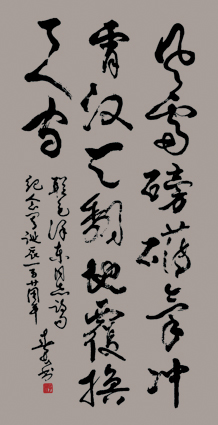 风雷磅礴气冲
霄汉天翻地覆换
了人间
毛泽东同志
纪念诞辰一百廿周年